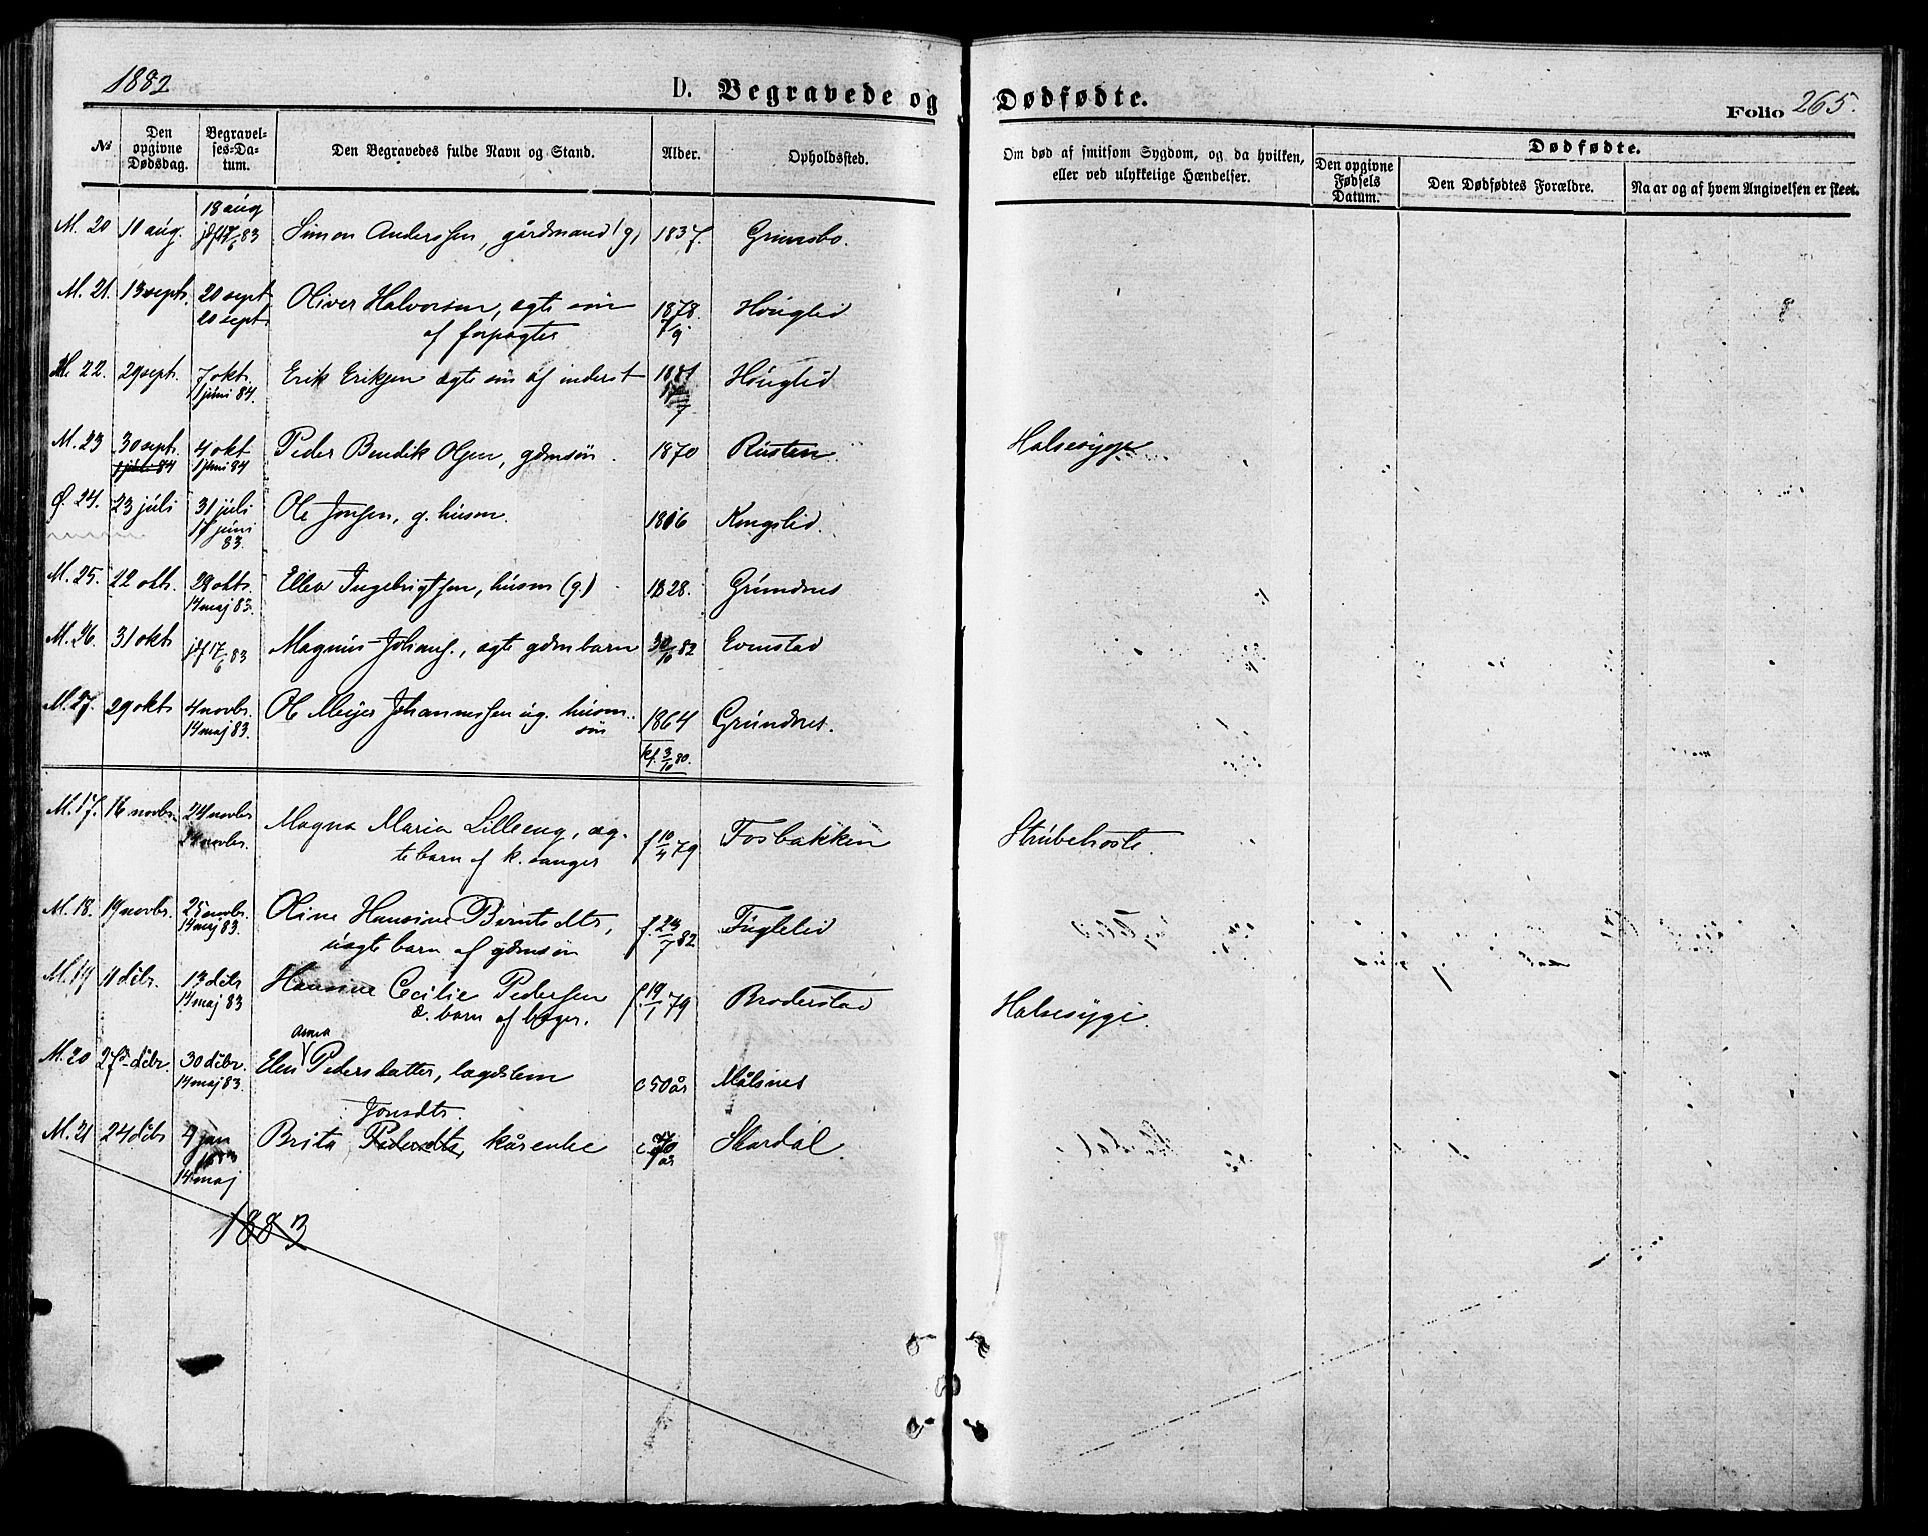 1882
D. Begravede og Dødfødte.
Folio 265.
No
Den opgivne Dødsdag.
Begravelses-Datum.
Den Begravedes fulde Navn og Stand.
Alder.
Opholdssted.
Om død af smitsom Sygdom, og da hvilken, eller ved ulykkelige Hændelser.
Dødfødte.
Den opgivne Fødsels Datum.
Den Dødfødtes Forældre.
Naar og af hvem Angivelsen er skeet.
M. 20 10 aug. 18 aug Simon Anderssen, gårdmand (g) 1837. Grimsbo.
jdf 17/6 83
M. 21. 13 sept. 20 sept Oliver Halvorsen, ægte søn 1878. Høuglid
20 sept af forpagter 7/9
M. 22. 29 sept. 7 okt. Erik Eriksen ægte søn af inderst 1881 Høuglid
1 juni 84.
M. 23 30 sept. 4 okt Peder Bendik Olsen, gdmsøn. 1870 Rusten Halsesyge
1 juni 84 1 juni 84
Ø. 24. 23 juli 31 juli Ole Jonsen, g. husm. 1816 Kongslid.
17 juni 83.
M. 25. 22 okt. 29 okt. Ellev Ingebrigtsen, husm (g) 1828. Grundnes
14 maj 83.
M. 26. 31 okt jdf 17/6 83 Magnus Johans., ægte gdmbarn 30/10 82 Evenstad
M. 27. 29 okt 4 novbr. Ole Meyer Johannessen ug. husm.søn 1864 Grundnes.
14 maj 83. kf. 3/10 80.
M. 17. 16 novbr. 24 novbr Magna Maria Lilleeng, æg-
24 novbr. te barn af k. sanger f 10/4 79 Fosbakken Strubehoste.
M. 18. 19 novbr. 25 novbr. Oline Hansine Berntsdtr,
14 maj 83. uægte barn af gdmsøn f. 23/7 82 Fuglelid
M. 19 11 debr. 13 debr Hansine Cecilie Pedersen f. 19/1 79 Broderstad Halsesyge.
14 maj 83 æ. barn af bøger.
Anna
M. 20 27de debr. 30 debr. Elen Pedersdatter, lægdslem c 50 år Målsnes
14 maj 83.
Jonsdtr.
M. 21 24 debr 4 jan Brita Pedersdtr, kårenke c. 70 år Stordal.
14 maj
1883